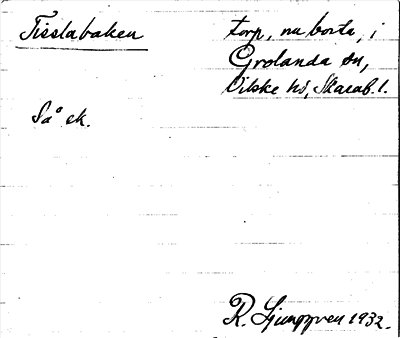 Tisslabaken
torp, nu borta, i
Grolanda sn,
Vilske hd, Skarab. l.
Så ek.
R. Ljunggren 1932.